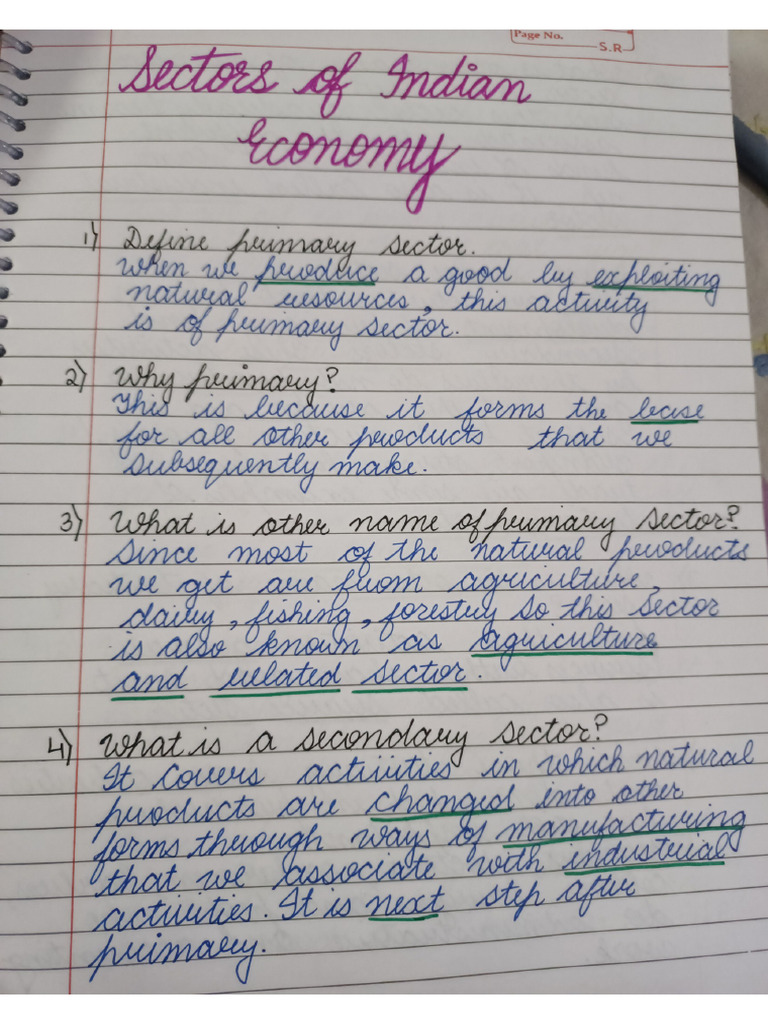 Page No.
S.R
Sectors of Indian
Economy
1) Define primary sector.
When we produce a good by exploiting
natural resources, this activity
is of primary sector.
2) Why primary?
This is because it forms the base
for all other products that we
subsequently make.
3) What is other name of primary sector?
Since most of the natural products
we get are from agriculture,
dairy, fishing, forestry so this sector
is also known as agriculture
and related sector.
4) What is a secondary sector?
It covers activities in which natural
products are changed into other
forms through ways of manufacturing
that we associate with industrial
activities. It is next step after
primary.